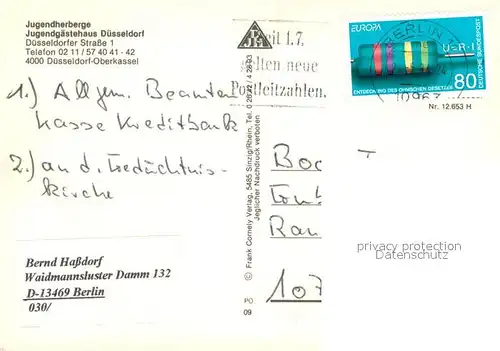 Jugendherberge
Jugendgästehaus Düsseldorf
Düsseldorfer Straße 1
Telefon 02 11 / 57 40 41 - 42
4000 Düsseldorf-Oberkassel
1.) Allgem. Beamten
Kasse Kreditbank
2.) an d. Gedächtnis-
kirche
Bernd Haßdorf
Waidmannsluster Damm 132
D-13469 Berlin
030/
© Frank Cornely Verlag, 5485 Sinzig/Rhein, Tel. 0 26 42 / 4 28 93
Jeglicher Nachdruck verboten
PO
09
eit 1.7.
elten neue
Postleitzahlen.
EUROPA
BERLIN
U=R·I
80
DEUTSCHE BUNDESPOST
ENTDECKUNG DES OHMSCHEN GESETZES
Nr. 12.653 H
107
privacy protection
Datenschutz